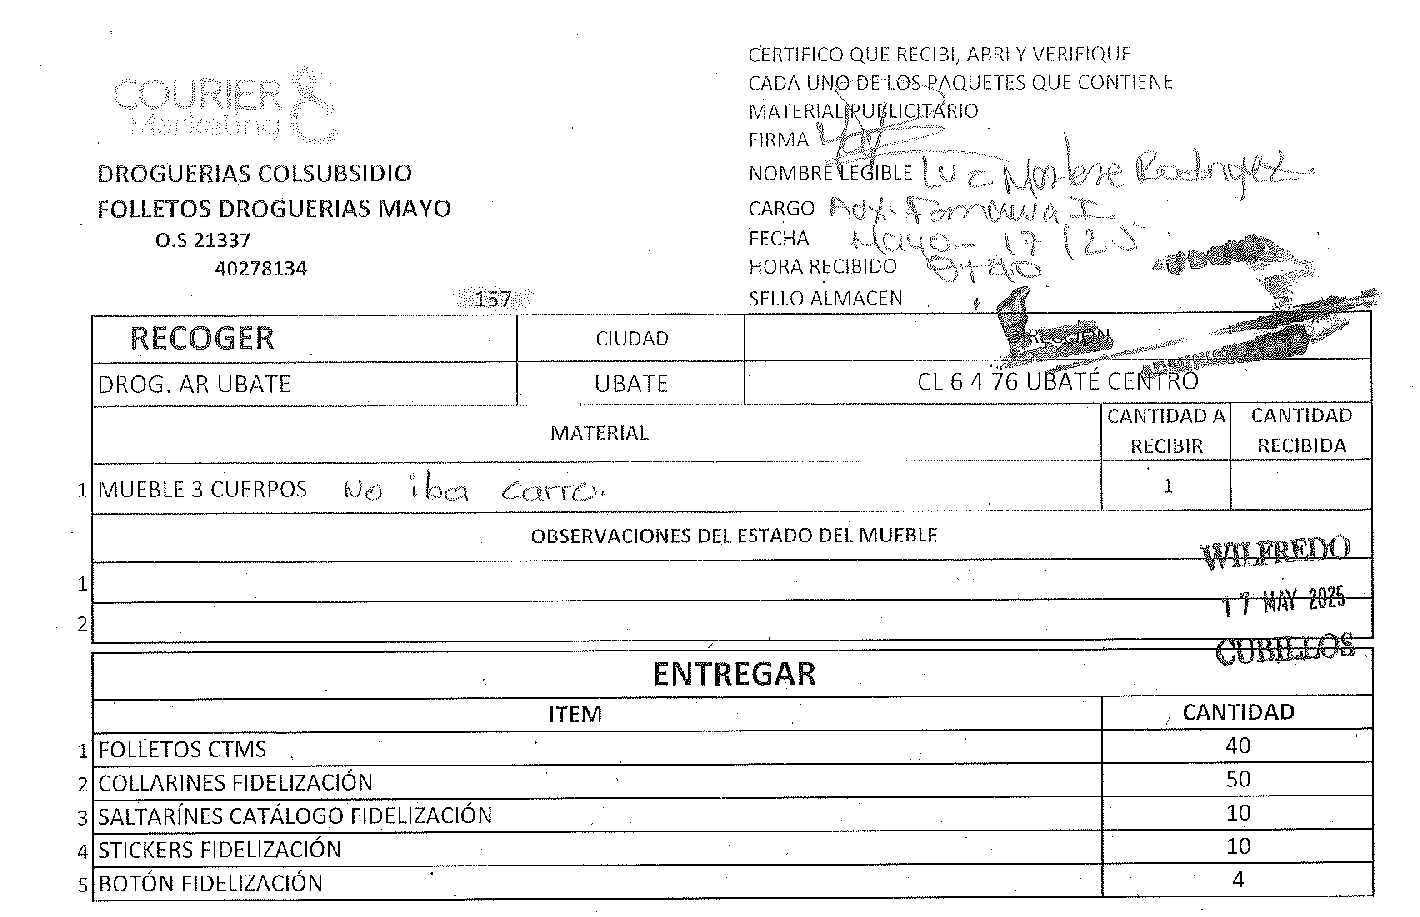 COURIER
Marketing
DROGUERIAS COLSUBSIDIO
FOLLETOS DROGUERIAS MAYO
O.S 21337
40278134
157
CERTIFICO QUE RECIBI, ABRI Y VERIFIQUE
CADA UNO DE LOS PAQUETES QUE CONTIENE
MATERIAL PUBLICITARIO
FIRMA
NOMBRE LEGIBLE Luz Rodriguez
CARGO Aux. Farmacia I
FECHA Mayo - 17 / 25
HORA RECIBIDO
SELLO ALMACEN
RECOGER CIUDAD DIRECCION
DROG. AR UBATE UBATE CL 6 4 76 UBATÉ CENTRO
MATERIAL CANTIDAD A RECIBIR CANTIDAD RECIBIDA
1 MUEBLE 3 CUERPOS No iba carro. 1
OBSERVACIONES DEL ESTADO DEL MUEBLE
WILFREDO
1
17 MAY 2025
2
CUBILLOS
ENTREGAR
ITEM CANTIDAD
1 FOLLETOS CTMS 40
2 COLLARINES FIDELIZACIÓN 50
3 SALTARÍNES CATÁLOGO FIDELIZACIÓN 10
4 STICKERS FIDELIZACIÓN 10
5 BOTÓN FIDELIZACIÓN 4